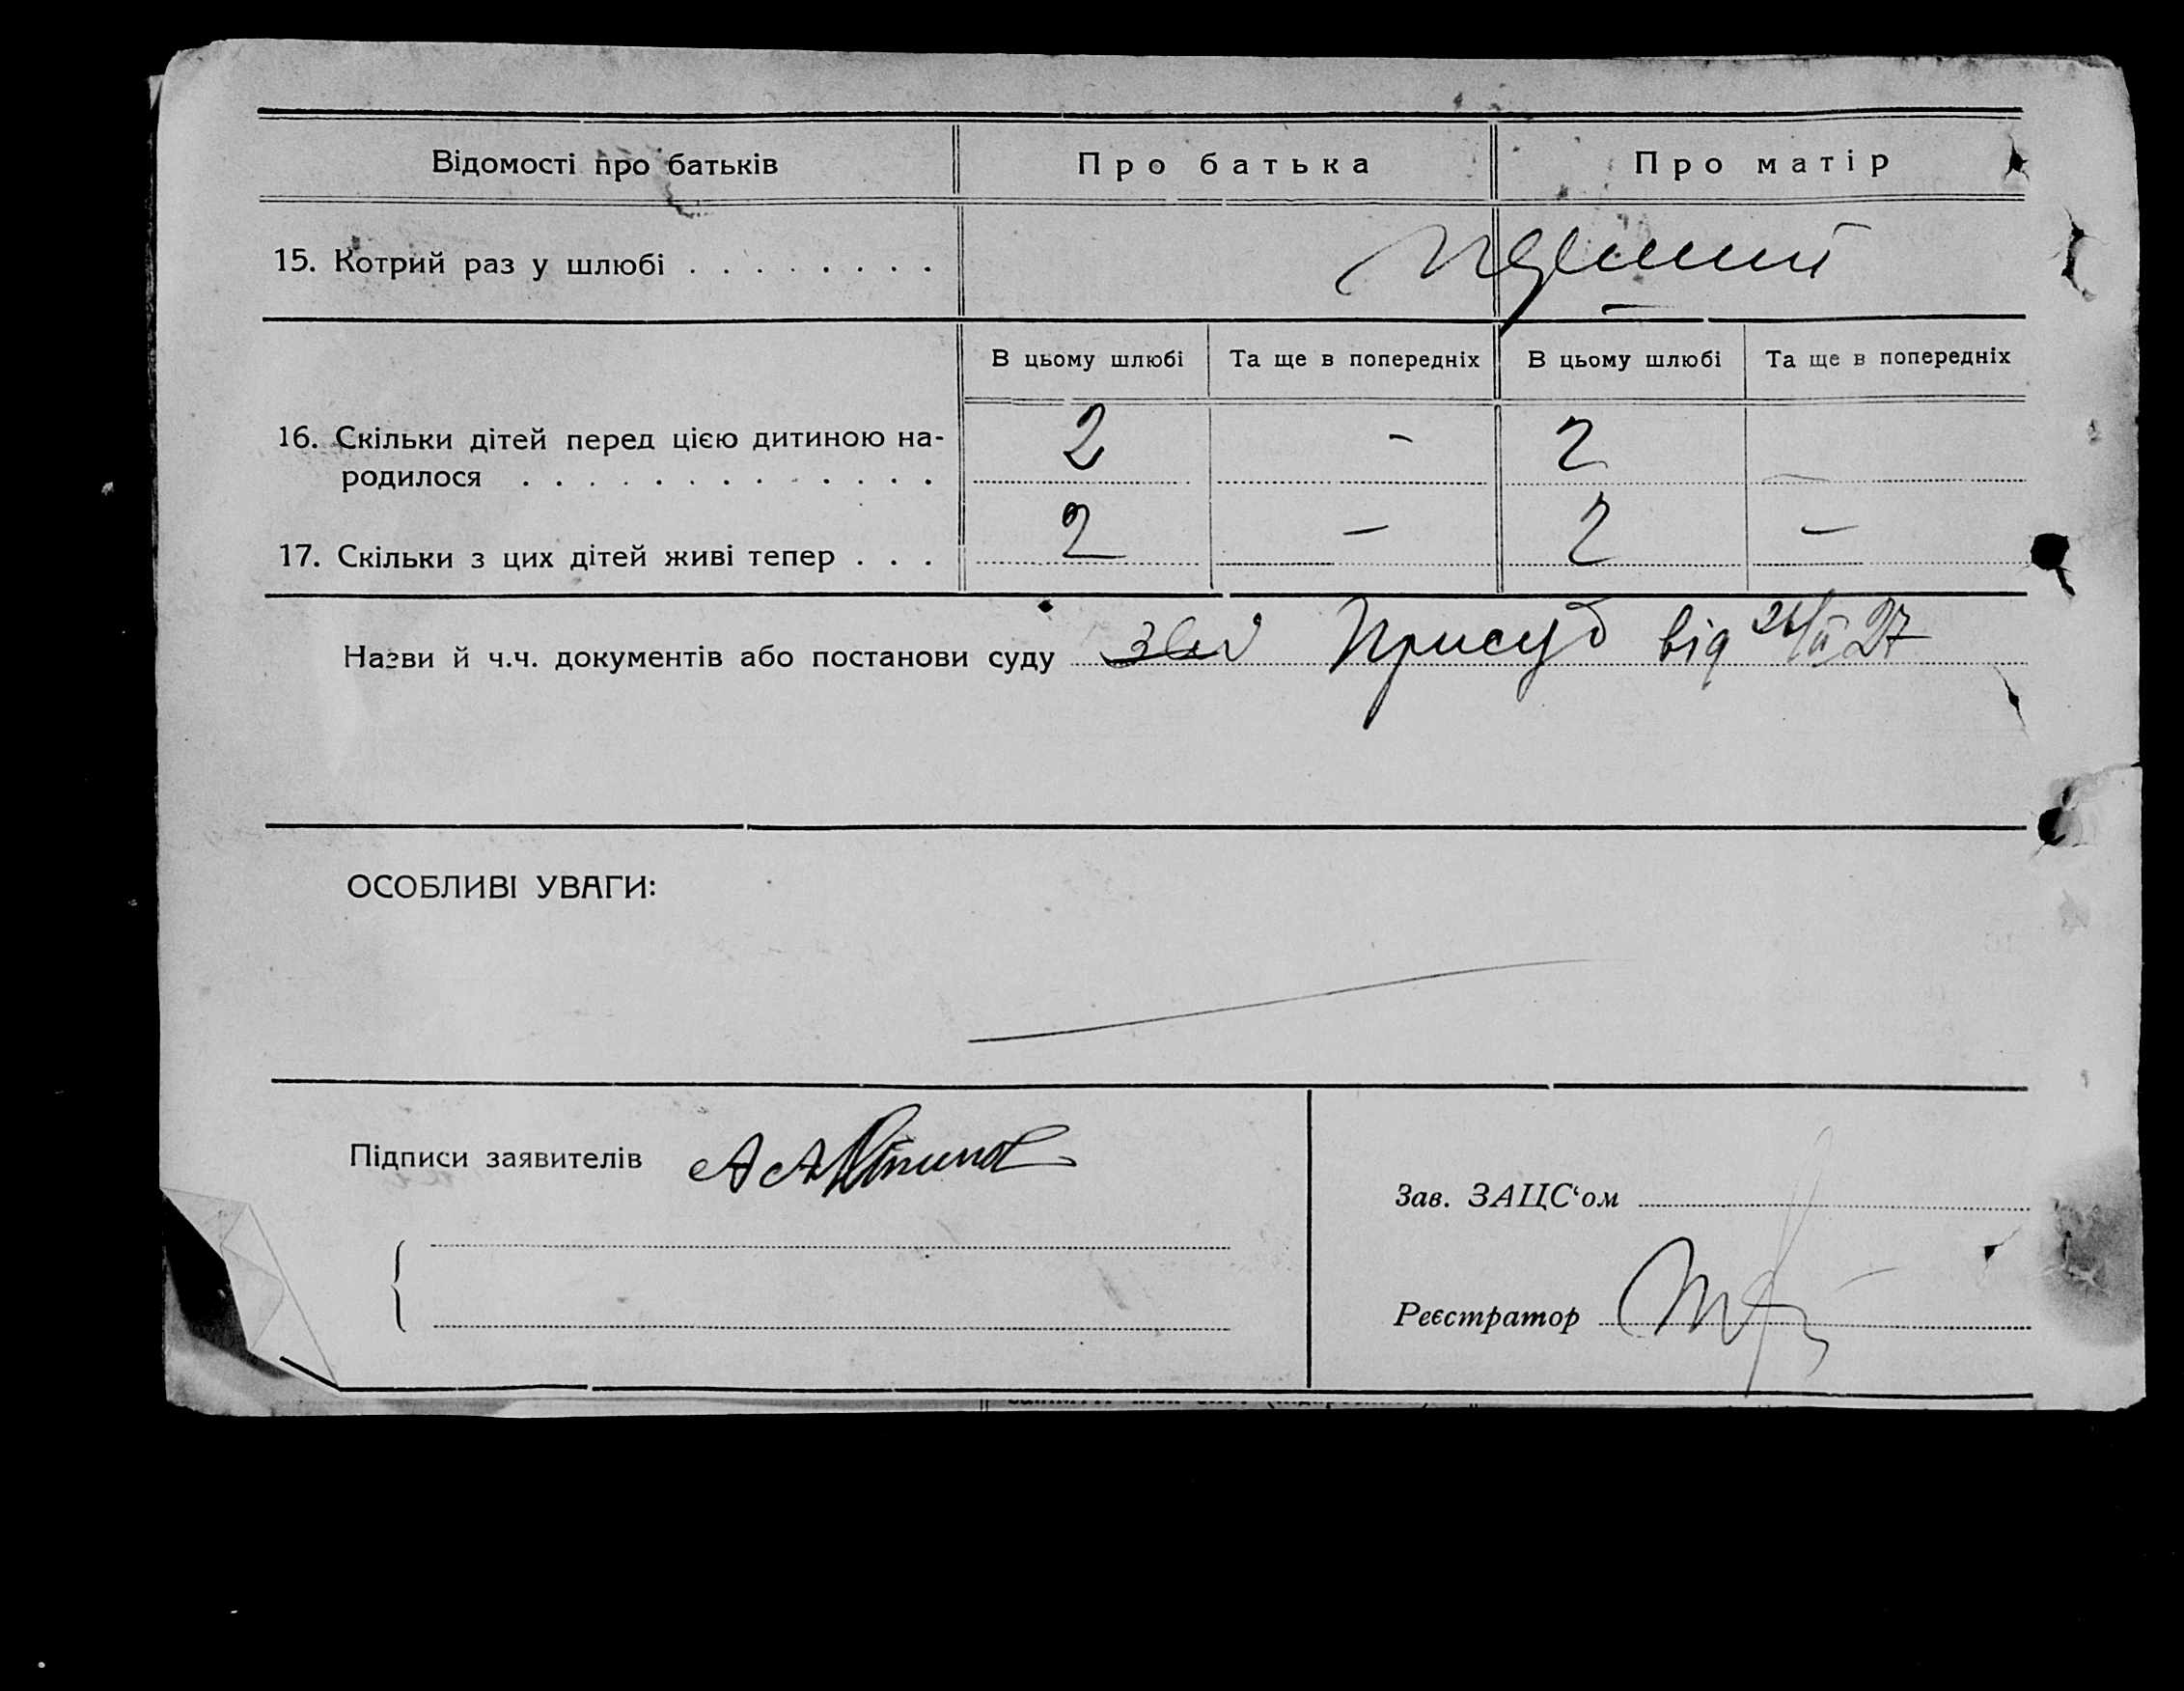 Відомості про батьків Про батька Про матір
15. Котрий раз у шлюбі . . . . . . . .
В цьому шлюбі Та ще в попередніх В цьому шлюбі Та ще в попередніх
16. Скільки дітей перед цією дитиною на- 2 - 2
родилося . . . . . . . . . . . . . .
17. Скільки з цих дітей живі тепер . . . 2 - 2 -
Назви й ч.ч. документів або постанови суду Присуд від 27
ОСОБЛИВІ УВАГИ:
Підписи заявителів
Зав. ЗАЦС‘ом
Реєстратор